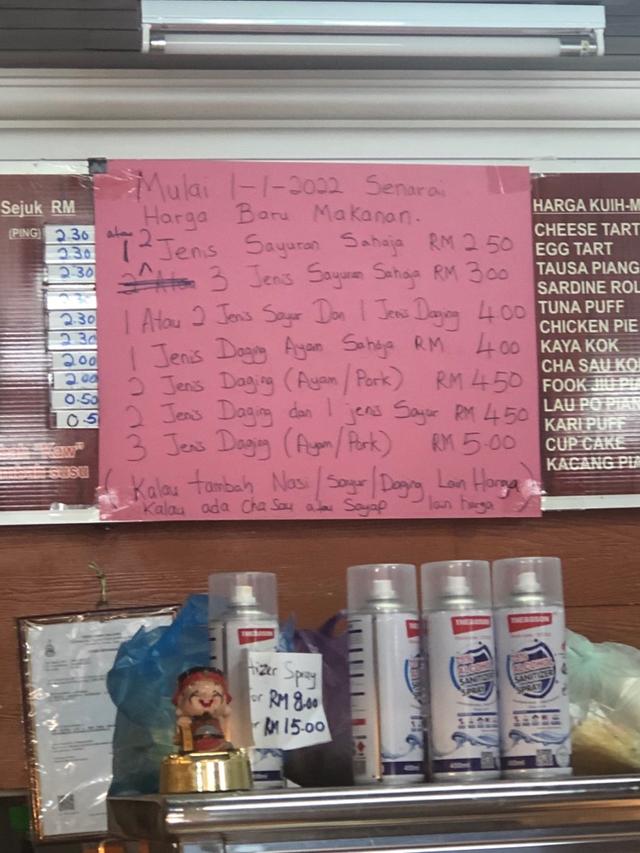 Sejuk RM
(PING) 2.30
2.30
2.30
2.30
2.30
2.00
2.00
0.50
0.5
"Kaw"
susu
Mulai 1-1-2022 Senarai
Harga Baru Makanan.
1 atau 2 Jenis Sayuran Sahaja RM 2 50
3 Jenis Sayuran Sahaja RM 3 00
1 Atau 2 Jenis Sayur Dan 1 Jenis Daging 4.00
1 Jenis Daging Ayam Sahaja RM 4 00
2 Jenis Daging (Ayam/Pork) RM 4 50
2 Jenis Daging dan 1 jenis Sayur RM 4 50
3 Jenis Daging (Ayam/Pork) RM 5.00
(Kalau tambah Nasi/Sayur/Daging Lain Harga)
Kalau ada Cha Sau atau Sayap lain harga
HARGA KUIH-M
CHEESE TART
EGG TART
TAUSA PIANG
SARDINE ROL
TUNA PUFF
CHICKEN PIE
KAYA KOK
CHA SAU KO
FOOK JIU PI
LAU PO PIA
KARI PUFF
CUP CAKE
KACANG PIA
tizer Spray
or RM 8.00
r RM 15.00
THEBOSON
THEBOSON
SANITIZER
SPRAY
THEBOSON
SANITIZER
SPRAY